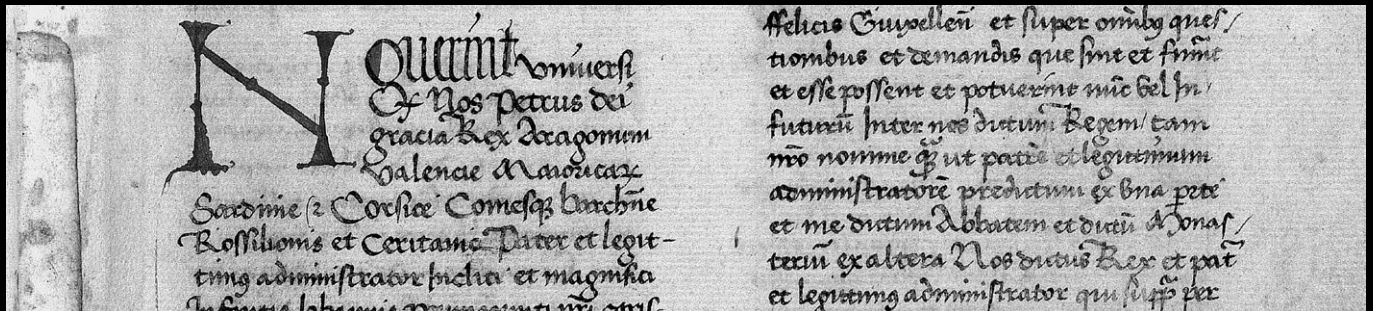 NOuerint vniuersi
Q Nos Petrus dei
gracia Rex Aragonum
Valencie Maioricaꝝ
Sardinie ⁊ Corsice Comesqꝫ barchn̄e
Rossilionis et Ceritanie Pater et legit-
timꝯ administrator Incliti et magnifici
Infantis Iohannis nr̄i
ffelicis Guixellen̄ et super omībꝯ ques/
tionibus et demandis que sint et
et esse possent et potuerint nūc vel In/
futurū Inter nos dictum Regem/ tam
nr̄o nomine ut patre et legittimum
administratorē predictum ex vna ꝑte
et me dictum Abbatem et dictū Monas/
teriū ex altera Nos dictus Rex et pat̄
et legittimꝯ administrator qui sup̄ per